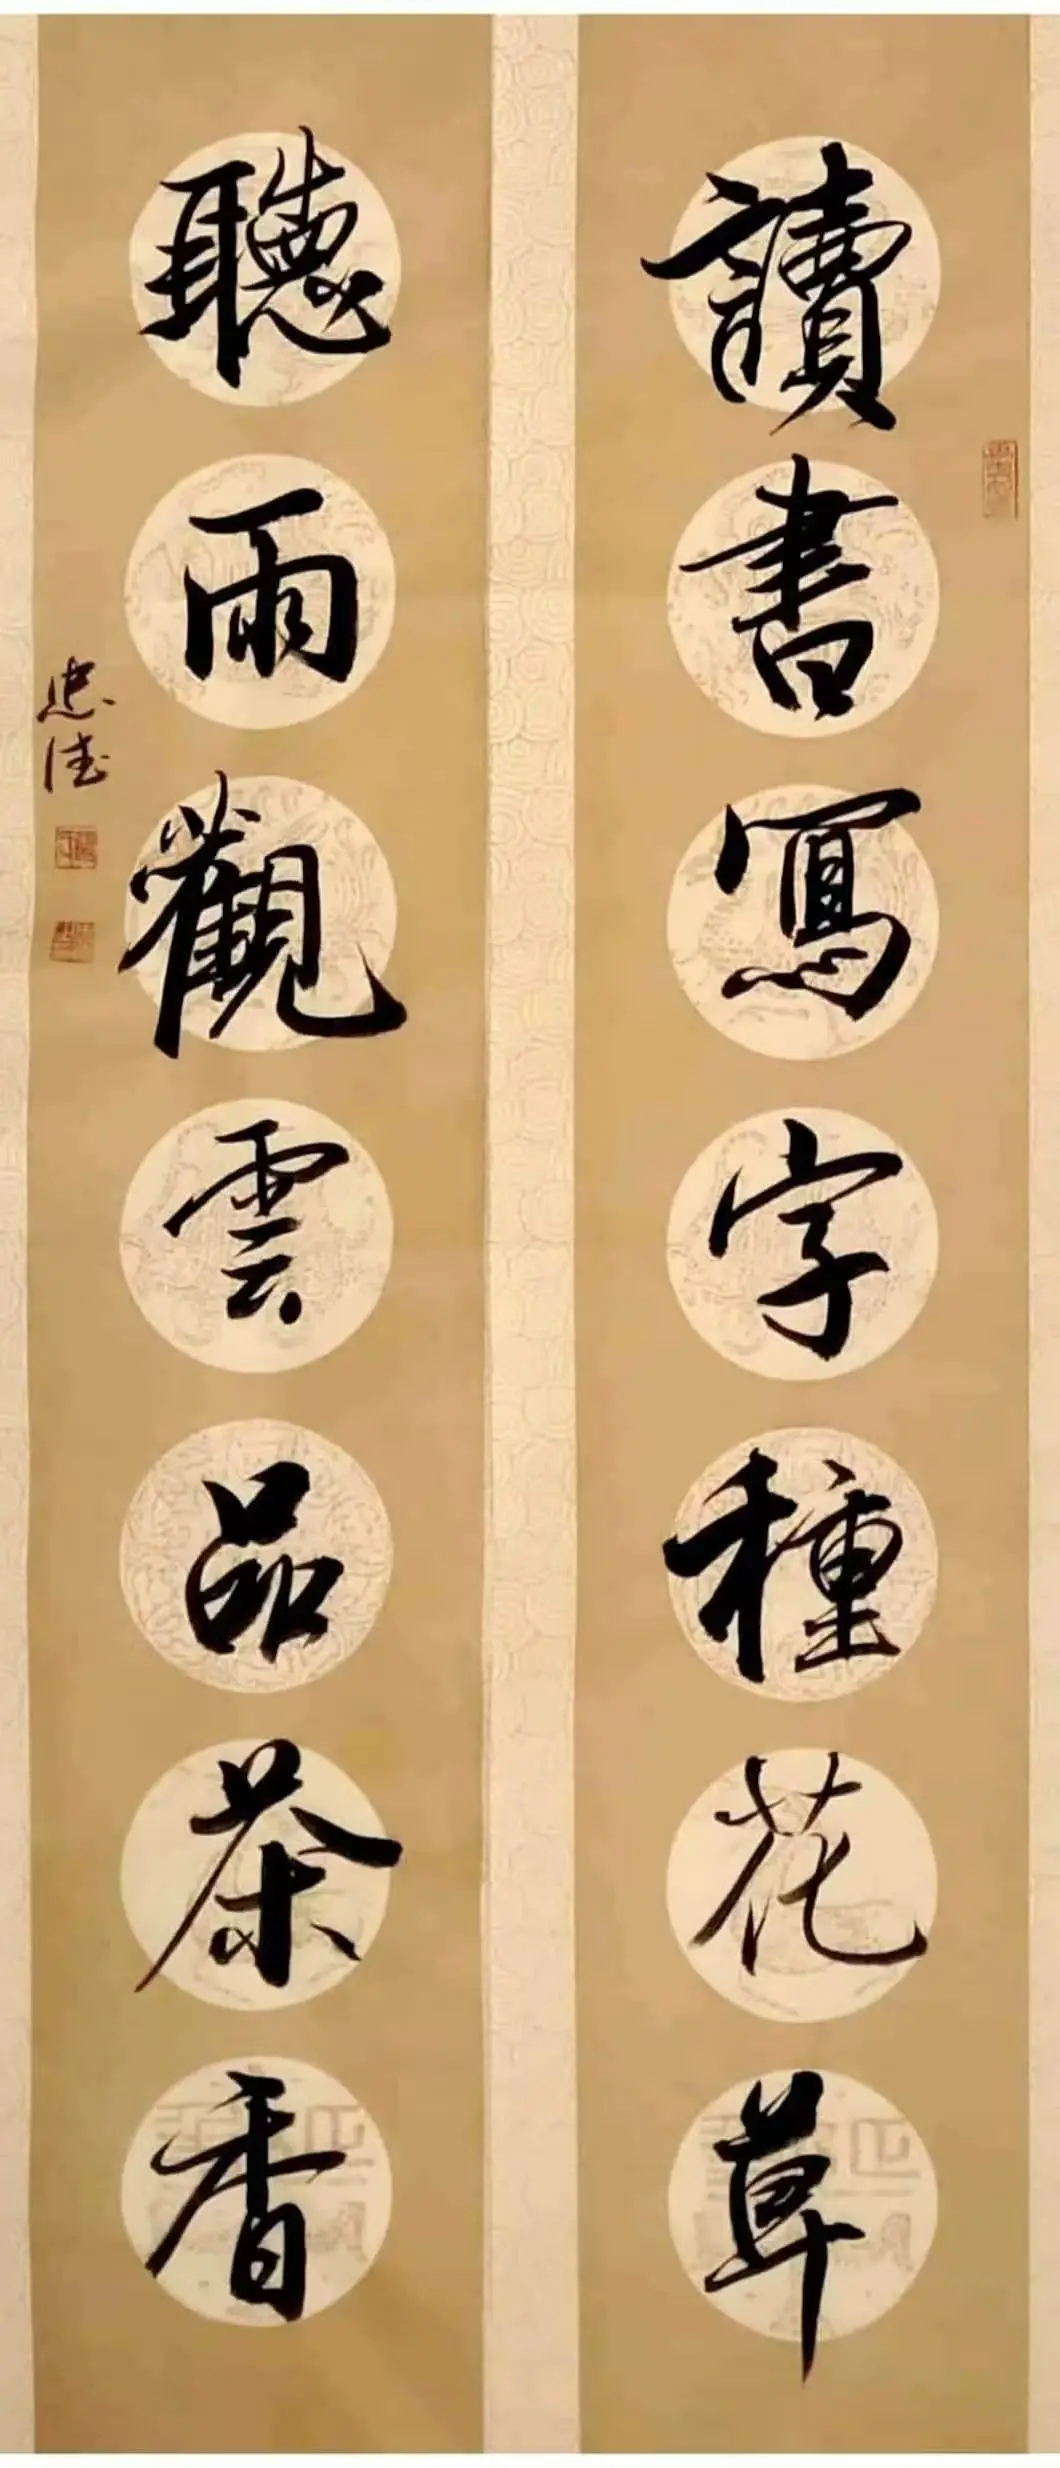 讀書寫字種花草
聽雨觀雲品茶香
忠德